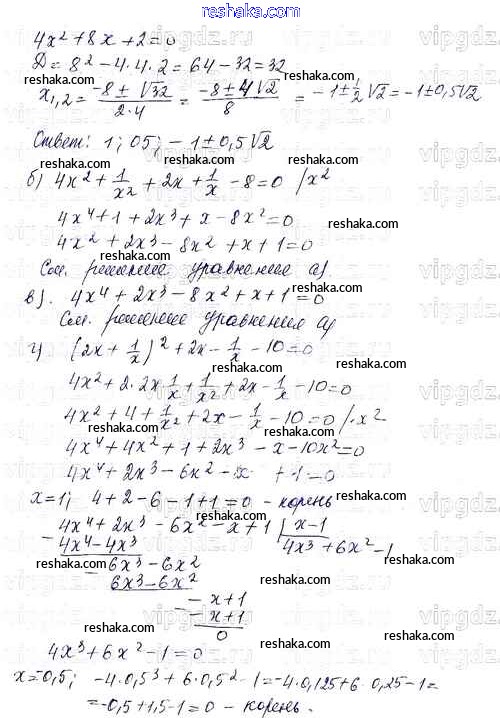 4x² + 8x + 2 = 0
D = 8² - 4·4·2 = 64 - 32 = 32
x₁,₂ = (-8 ± √32)/(2·4) = (-8 ± 4√2)/8 = -1 ± 1/2 √2 = -1 ± 0,5√2
Ответ: 1; 05; -1 ± 0,5√2
б) 4x² + 1/x² + 2x + 1/x - 8 = 0 /x²
4x⁴ + 1 + 2x³ + x - 8x² = 0
4x² + 2x³ - 8x² + x + 1 = 0
См. решение уравнения а)
в). 4x⁴ + 2x³ - 8x² + x + 1 = 0
См. решение уравнения а)
г) (2x + 1/x)² + 2x - 1/x - 10 = 0
4x² + 2·2x 1/x + 1/x² + 2x - 1/x - 10 = 0
4x² + 4 + 1/x² + 2x - 1/x - 10 = 0 /·x²
4x⁴ + 4x² + 1 + 2x³ - x - 10x² = 0
4x⁴ + 2x³ - 6x² - x + 1 = 0
x = 1; 4 + 2 - 6 - 1 + 1 = 0 - корень
4x⁴ + 2x³ - 6x² - x + 1 | x - 1
4x⁴ - 4x³ 4x³ + 6x² - 1
6x³ - 6x²
6x³ - 6x²
- x + 1
- x + 1
0
4x³ + 6x² - 1 = 0
x = -0,5; -4·0,5³ + 6·0,5² - 1 = -4·0,125 + 6·0,25 - 1 =
= -0,5 + 1,5 - 1 = 0 - корень.